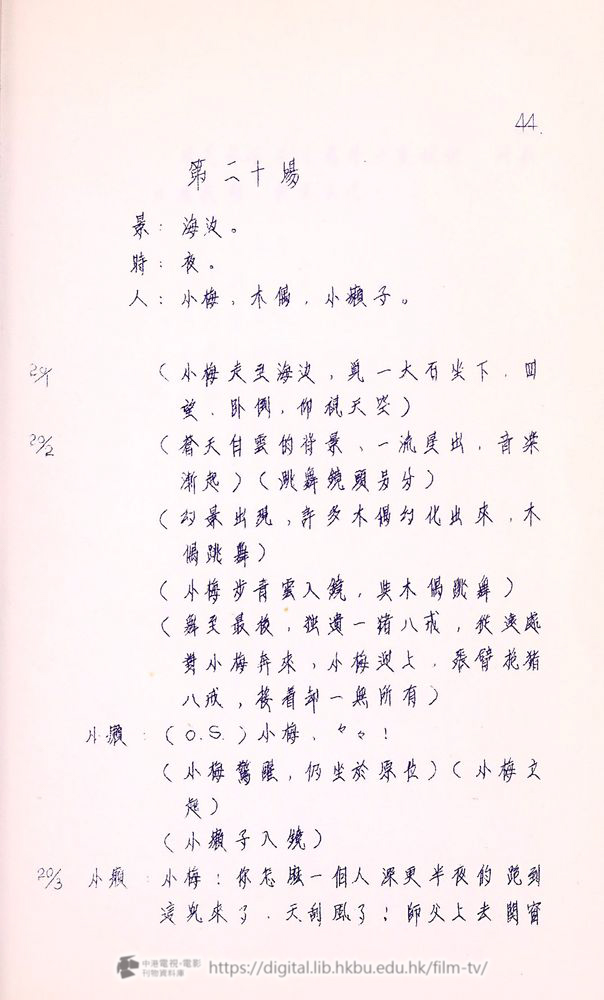 44.
第二十場
景：海边。
時：夜。
人：小梅，木偶，小癩子。
20/1 （小梅走至海边，覓一大石坐下，四
望，卧倒，仰視天空）
20/2 （蒼天白雲的背景，一流星出，音楽
漸起）（跳舞鏡頭另分）
（幻景出現，許多木偶幻化出來，木
偶跳舞）
（小梅步青雲入鏡，與木偶跳舞）
（舞至最後，独遺一猪八戒，從遠處
對小梅奔來，小梅迎上，張臂抱猪
八戒，接着却一無所有）
小癩：（O.S.）小梅，々々！
（小梅驚醒，仍坐於原位）（小梅立
起）
（小癩子入鏡）
20/3 小癩：小梅：你怎麽一個人深更半夜的跑到
這兒來了，天刮風了；師父上去関窗
中港電視·電影
刊物資料庫
https://digital.lib.hkbu.edu.hk/film-tv/